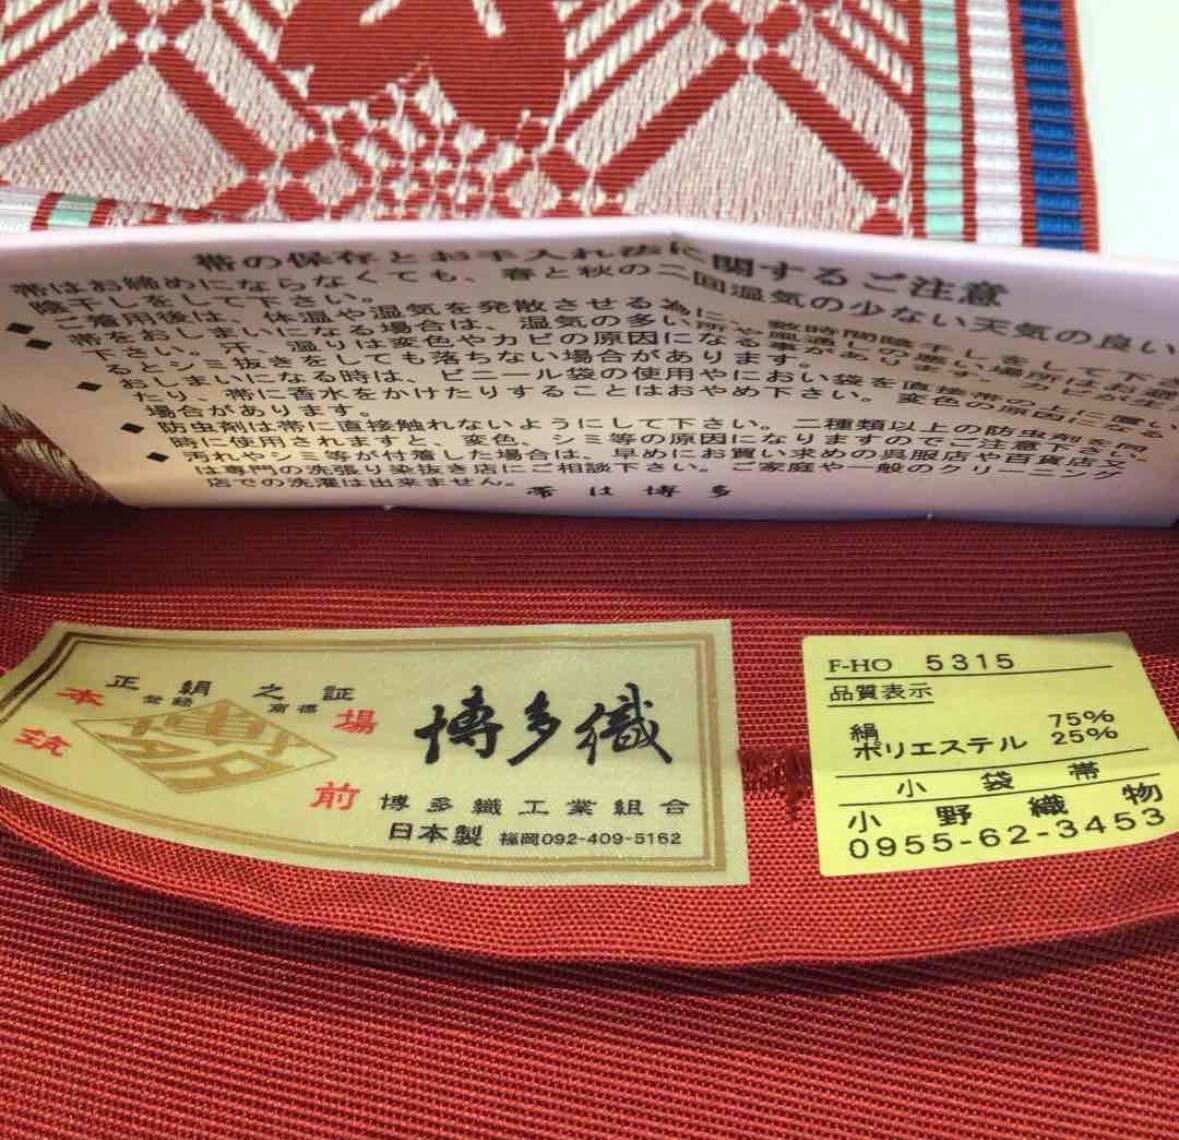 帯の保存とお手入れ法に関するご注意
帯はお締めにならなくても、春と秋の二回湿気の少ない天気の良い
陰干しをして下さい。
◆ご着用後は、体温や湿気を発散させる為に、数時間陰干しをして下さ
◆帯をおしまいになる場合は、湿気の多い所や風通しの悪い場所はお避
下さい。汗、湿りは変色やカビの原因になる事があります。カビが生
るとシミ抜きをしても落ちない場合があります。
◆おしまいになる時は、ビニール袋の使用やにおい袋を直接帯の上に置い
たり、帯に香水をかけたりすることはおやめ下さい。変色の原因になる
場合があります。
◆防虫剤は帯に直接触れないようにして下さい。二種類以上の防虫剤を同
時に使用されますと、変色、シミ等の原因になりますのでご注意下さい。
◆汚れやシミ等が付着した場合は、早めにお買い求めの呉服店や百貨店又
は専門の洗張り染抜き店にご相談下さい。ご家庭や一般のクリーニング
店での洗濯は出来ません。
帯は博多
正絹之証
登録商標
本場
筑前
博多
博多織
博多織工業組合
日本製 福岡092-409-5162
F-HO 5315
品質表示
絹 75%
ポリエステル 25%
小袋帯
小野織物
0955-62-3453